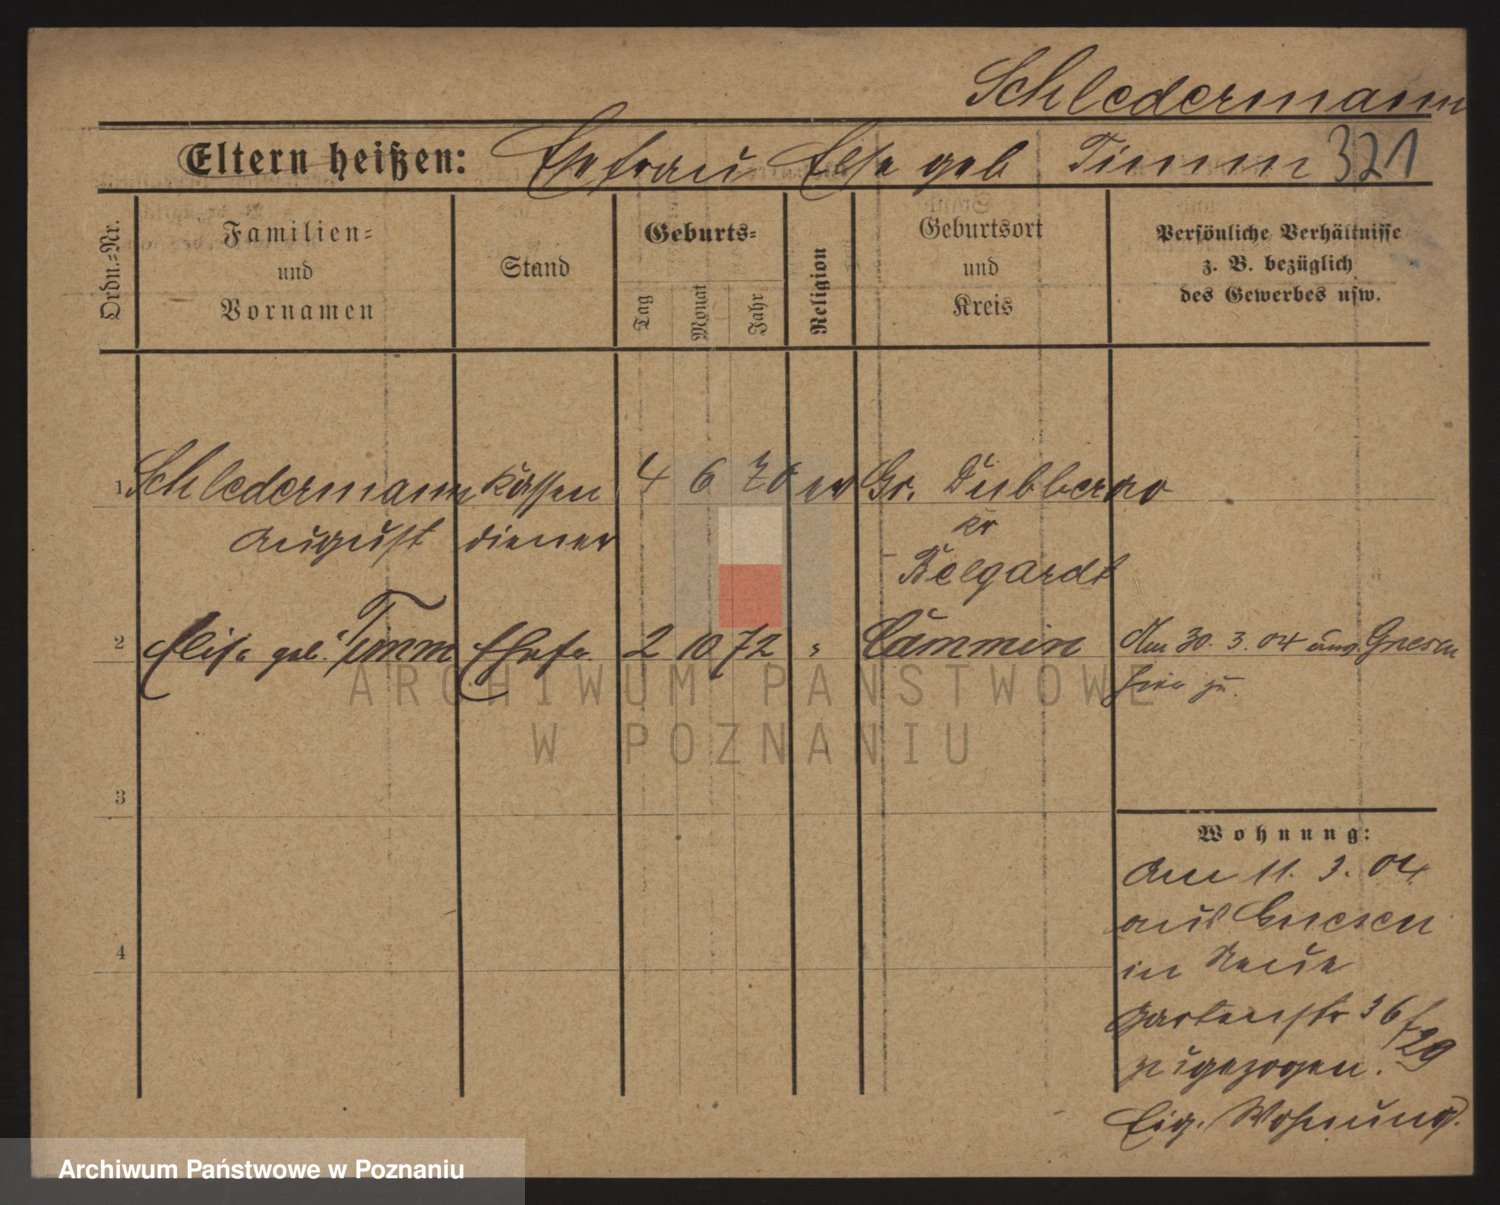 Schledermann
Eltern heißen: Ehefrau Else geb Timm 321
Ordn.=Nr.
Familien=
und
Vornamen
Stand
Geburts=
Tag
Monat
Jahr
Religion
Geburtsort
und
Kreis
Persönliche Verhältnisse
z. B. bezüglich
des Gewerbes usw.
1 Schledermann Kassen 4 6 70 ev Gr. Dubberow
August diener Kr
Belgardt
2 Elise geb. Timm Ehefr. 2 10 72 " Cammin Am 30. 3. 04 aus Gnesen
hier zu.
3
4
Wohnung:
Am 11. 3. 04
aus Gnesen
in Neue
Gartenstr 36/29
zugezogen.
Eig. Wohnung.
ARCHIWUM PAŃSTWOWE
W POZNANIU
Archiwum Państwowe w Poznaniu